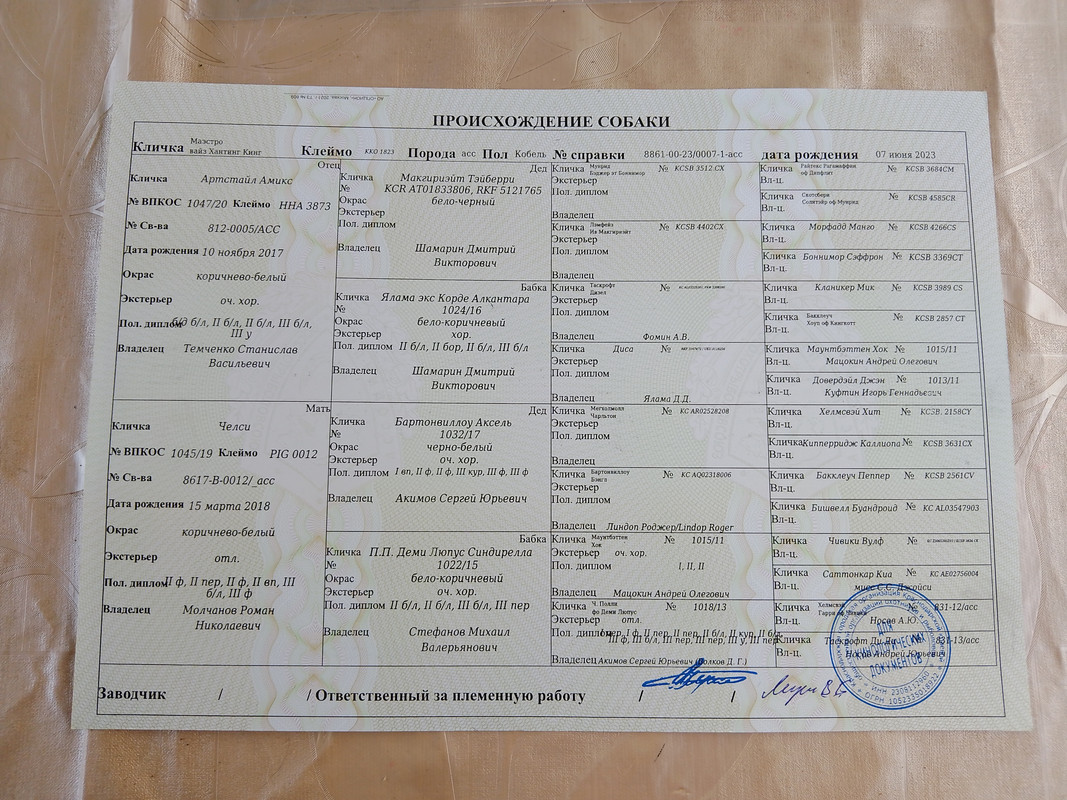 ПРОИСХОЖДЕНИЕ СОБАКИ
Кличка Маэстро вайз Хантинг Кинг Клеймо KKO 1823 Порода асс Пол Кобель № справки 8861-00-23/0007-1-асс дата рождения 07 июня 2023
Отец
Кличка Артстайл Амикс
№ ВПКОС 1047/20 Клеймо HHA 3873
№ Св-ва 812-0005/АСС
Дата рождения 10 ноября 2017
Окрас коричнево-белый
Экстерьер оч. хор.
Пол. диплом б/д б/л, II б/л, II б/л, III б/л,
III у
Владелец Темченко Станислав
Васильевич
Мать
Кличка Челси
№ ВПКОС 1045/19 Клеймо PIG 0012
№ Св-ва 8617-В-0012/_асс
Дата рождения 15 марта 2018
Окрас коричнево-белый
Экстерьер отл.
Пол. диплом II ф, II пер, II ф, II вп, III
б/л, III ф
Владелец Молчанов Роман
Николаевич
Дед
Кличка Макгриэйт Тэйберри
№ KCR AT01833806, RKF 5121765
Окрас бело-черный
Экстерьер
Пол. диплом
Владелец Шамарин Дмитрий
Викторович
Бабка
Кличка Ялама экс Корде Алкантара
№ 1024/16
Окрас бело-коричневый
Экстерьер хор.
Пол. диплом II б/л, II бор, II б/л, III б/л
Владелец Шамарин Дмитрий
Викторович
Дед
Кличка Бартонвиллоу Аксель
№ 1032/17
Окрас черно-белый
Экстерьер оч. хор.
Пол. диплом I вп, II ф, II ф, III кур, III ф, III ф
Владелец Акимов Сергей Юрьевич
Бабка
Кличка П.П. Деми Люпус Синдирелла
№ 1022/15
Окрас бело-коричневый
Экстерьер оч. хор.
Пол. диплом II б/л, II б/л, III б/л, III пер
Владелец Стефанов Михаил
Валерьянович
Кличка Мунрид Бэджер эт Боннимор № KCSB 3512 CX
Экстерьер
Пол. диплом
Владелец
Кличка Ив Макгириэйт № KCSB 4402CX
Экстерьер
Пол. диплом
Владелец
Кличка Таскрофт Дизел №
Экстерьер
Пол. диплом
Владелец Фомин А.В.
Кличка Диса №
Экстерьер
Пол. диплом
Владелец Ялама Д.Д.
Кличка Чарльтон № KC AR02528208
Экстерьер
Пол. диплом
Владелец
Кличка Бартонвиллоу Бэнгл № KC AQ02318006
Экстерьер
Пол. диплом
Владелец Линдоп Роджер/Lindop Roger
Кличка Маунтбэттен Хок № 1015/11
Экстерьер оч. хор.
Пол. диплом I, II, II
Владелец Мацокин Андрей Олегович
Кличка Ч. Полли фо Деми Люпус № 1018/13
Экстерьер отл.
Пол. диплом пер, I ф, II пер, II пер, II б/л, II кур, II б/л,
III ф, III б/л, III пер, III пер, III у, III пер
Владелец Акимов Сергей Юрьевич (Волков Д. Г.)
Кличка № KCSB 3684CM
Вл-ц.
Кличка Скотсберн Солитэйр оф Мунрид № KCSB 4585CR
Вл-ц.
Кличка Морфадд Манго № KCSB 4266CS
Вл-ц.
Кличка Боннимор Сэффрон № KCSB 3369CT
Вл-ц.
Кличка Кланикер Мик № KCSB 3989 CS
Вл-ц.
Кличка Бакклеуч Хоуп оф Кингкотт № KCSB 2857 CT
Вл-ц.
Кличка Маунтбэттен Хок № 1015/11
Вл-ц. Мацокин Андрей Олегович
Кличка Довердэйл Джэн № 1013/11
Вл-ц. Куфтин Игорь Геннадьевич
Кличка Хелмсвэй Хит № KCSB. 2158CY
Вл-ц.
Кличка Кипперридж Каллиопа № KCSB 3631CX
Вл-ц.
Кличка Бакклеуч Пеппер № KCSB 2561CV
Вл-ц.
Кличка Бишвелл Буандроид № KC AL03547903
Вл-ц.
Кличка Чивики Вулф №
Вл-ц.
Кличка Саттонкар Киа № KC AE02756004
Вл-ц. мисс С.С. Джойси
Кличка Хелмсвэй № 831-12/асс
Вл-ц. Носов А.Ю.
Кличка Таскрофт 831-13/асс
Вл-ц. Носов Андрей Юрьевич
Заводчик / / Ответственный за племенную работу / /
ДЛЯ
КИНОЛОГИЧЕСКИХ
ДОКУМЕНТОВ